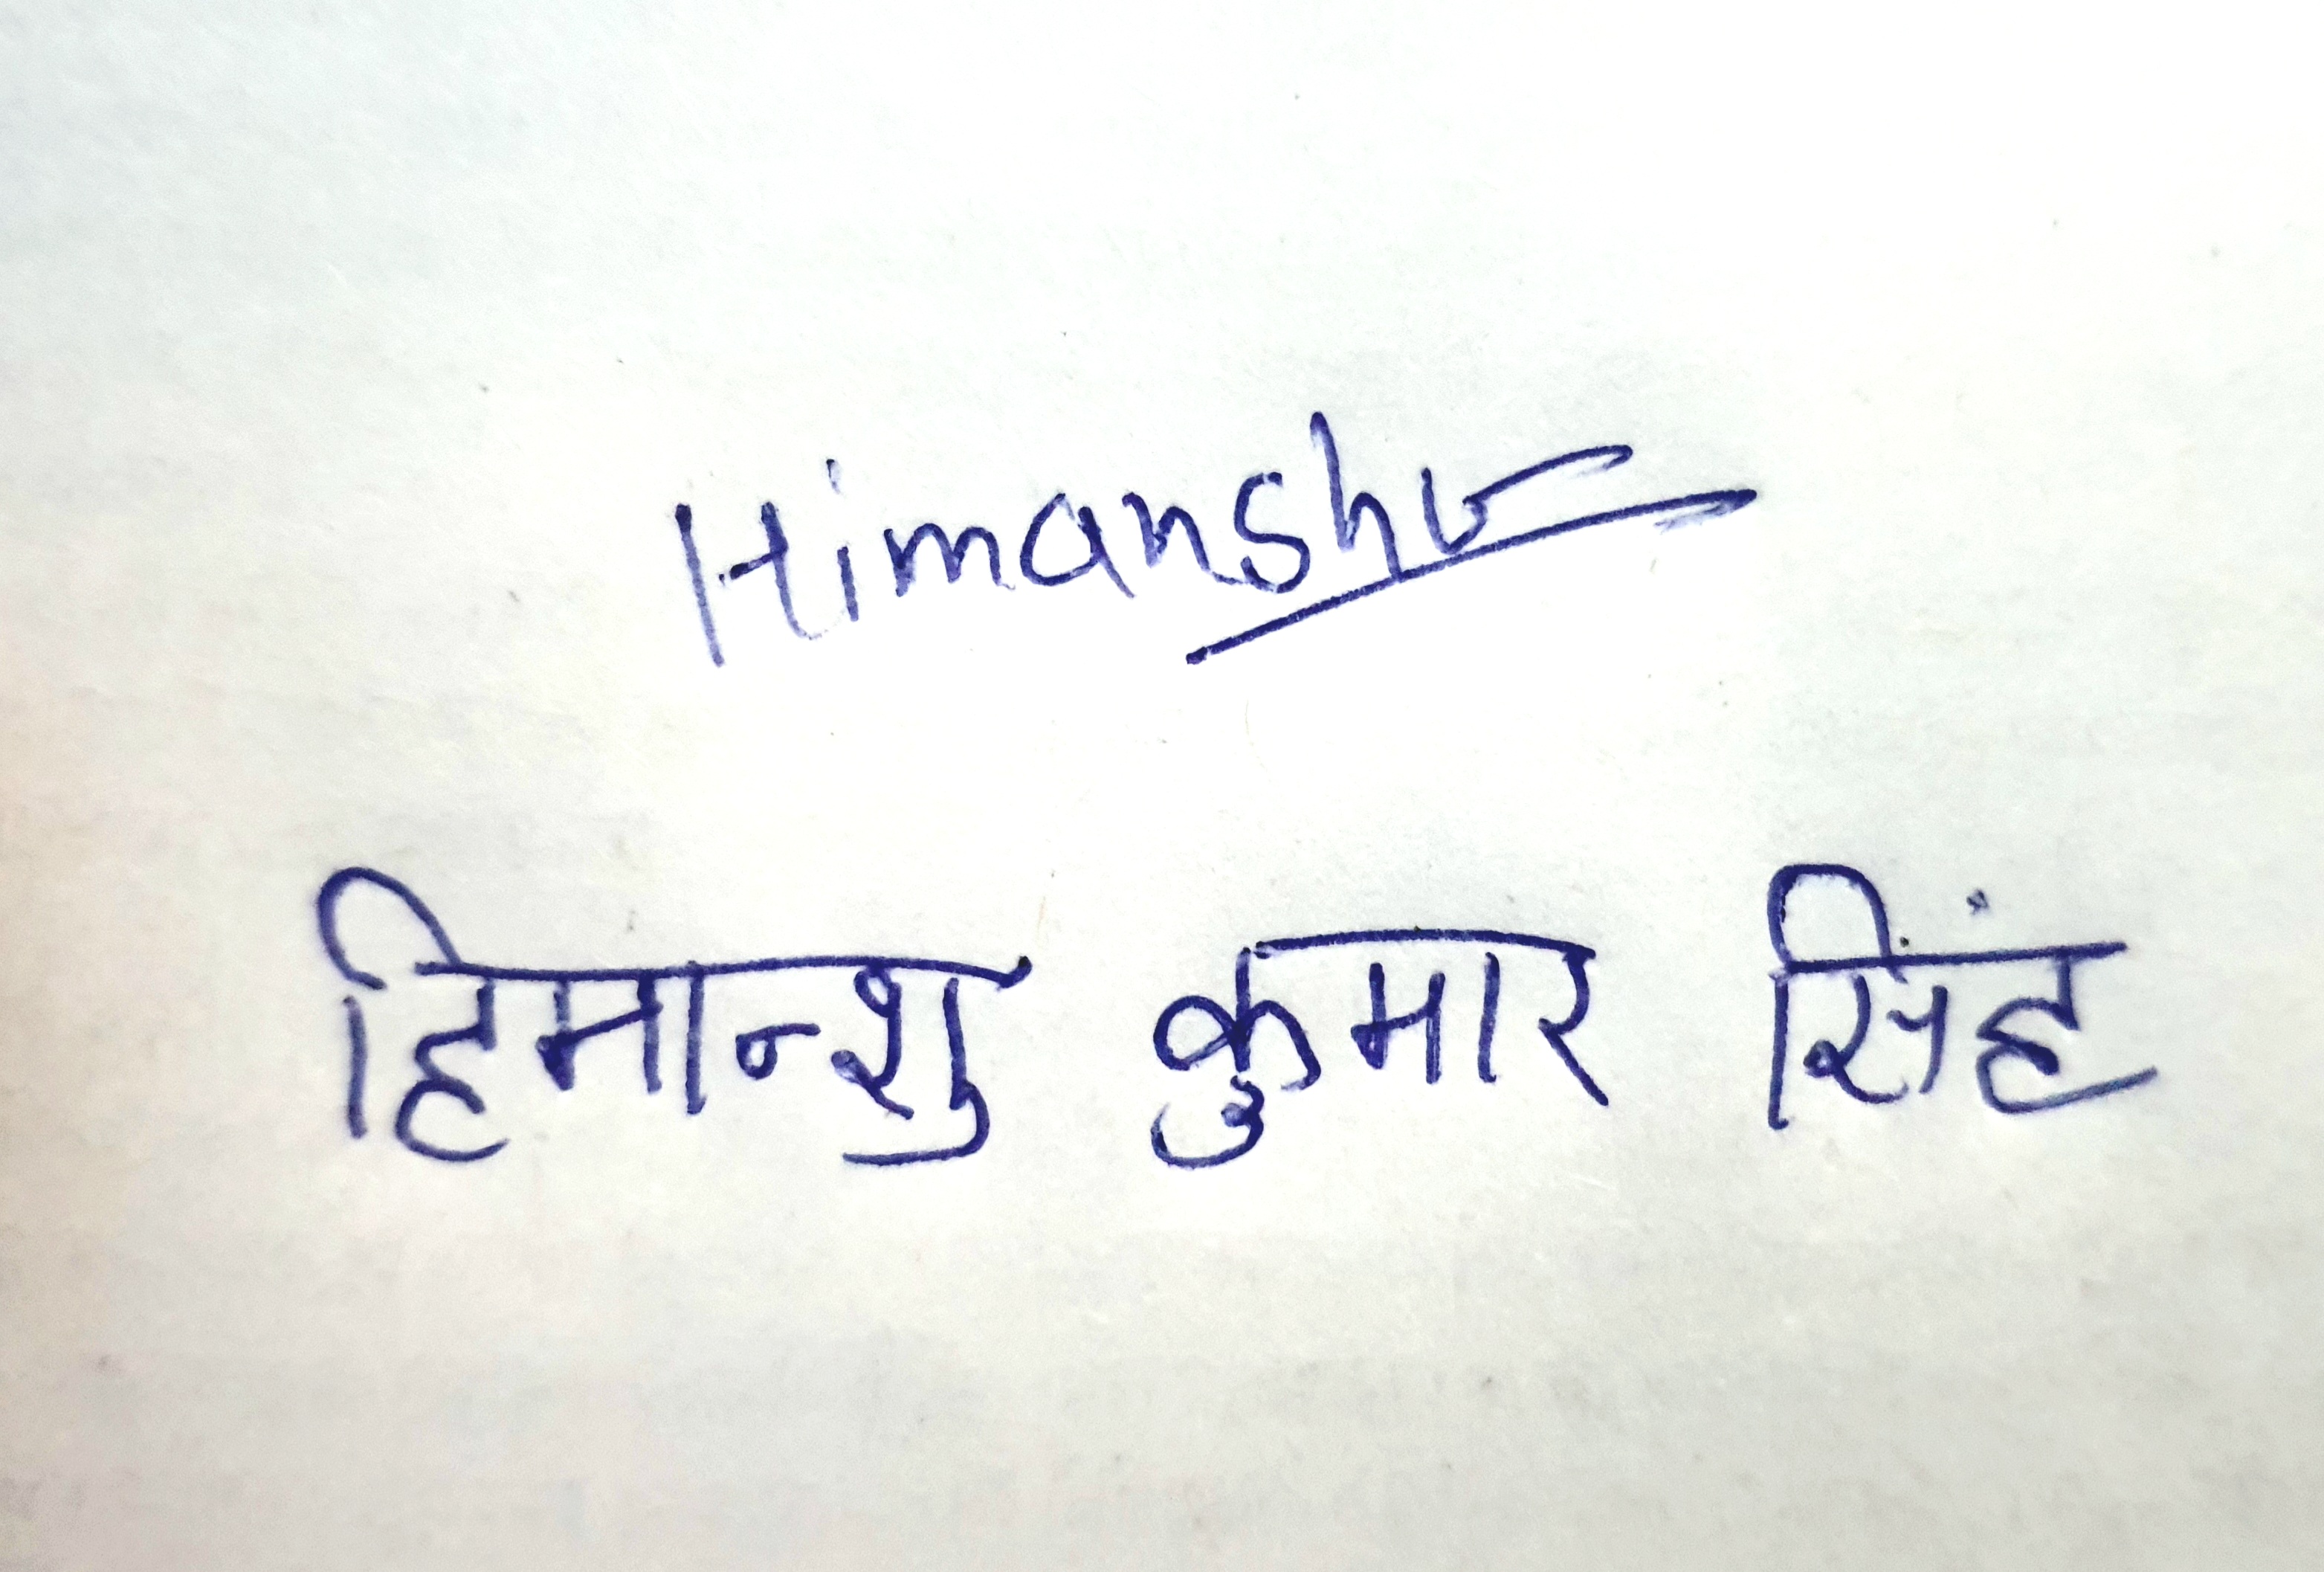 Himanshu
हिमान्शु कुमार सिंह